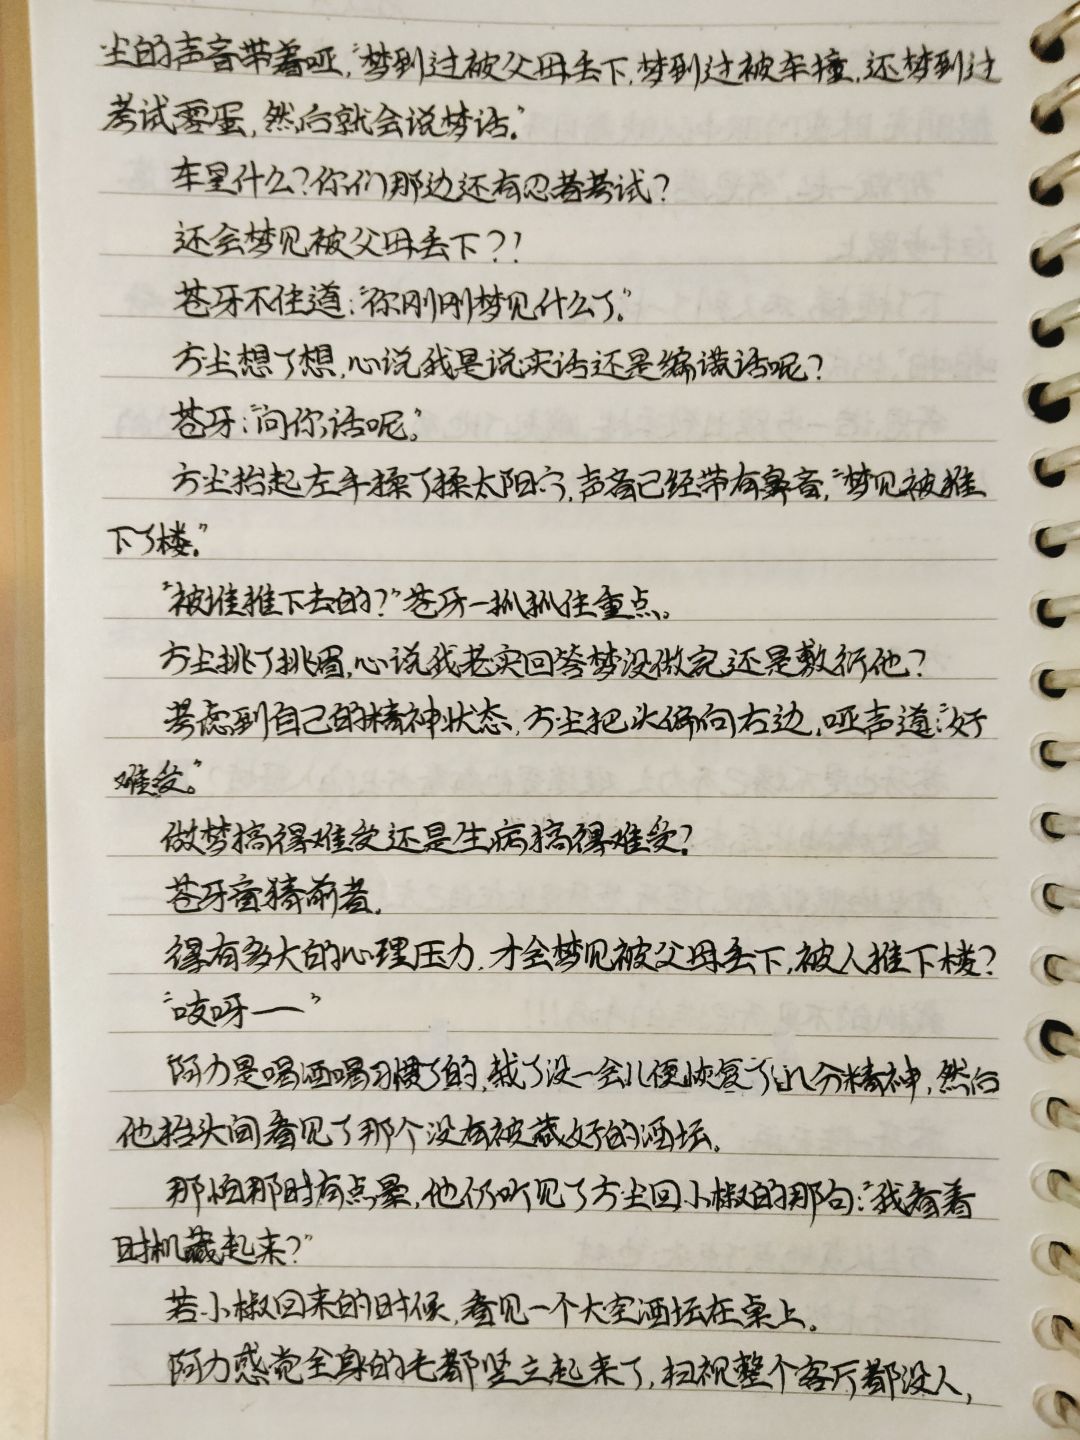 尘的声音带着哑,“梦到过被父母丢下,梦到过被车撞,还梦到过
考试零蛋,然后就会说梦话。”
车是什么?你们那边还有忍者考试?
还会梦见被父母丢下?!
苍牙不住道:“你刚刚梦见什么了。”
方尘想了想,心说我是说实话还是编谎话呢?
苍牙:“问你话呢。”
方尘抬起左手揉了揉太阳穴,声音已经带有鼻音,“梦见被推
下了楼。”
“被谁推下去的?”苍牙一抓抓住重点。
方尘挑了挑眉,心说我老实回答梦没做完还是敷衍他?
考虑到自己的精神状态,方尘把头偏向右边,哑声道:“好
难受。”
做梦搞得难受还是生病搞得难受?
苍牙盲猜前者。
得有多大的心理压力,才会梦见被父母丢下,被人推下楼?
“吱呀——”
阿力是喝酒喝习惯了的,栽了没一会儿便恢复了几分精神,然后
他抬头间看见了那个没有被藏好的酒坛。
那怕那时有点晕,他仍听见了方尘回小椒的那句:“我看着
时机藏起来?”
若小椒回来的时候,看见一个大空酒坛在桌上。
阿力感觉全身的毛都竖立起来了,扫视整个客厅都没人,